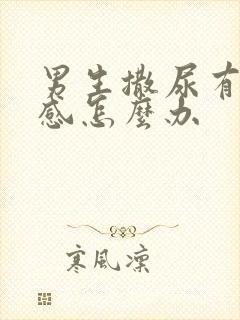 男生撒尿有
感怎麼办
寒風凜